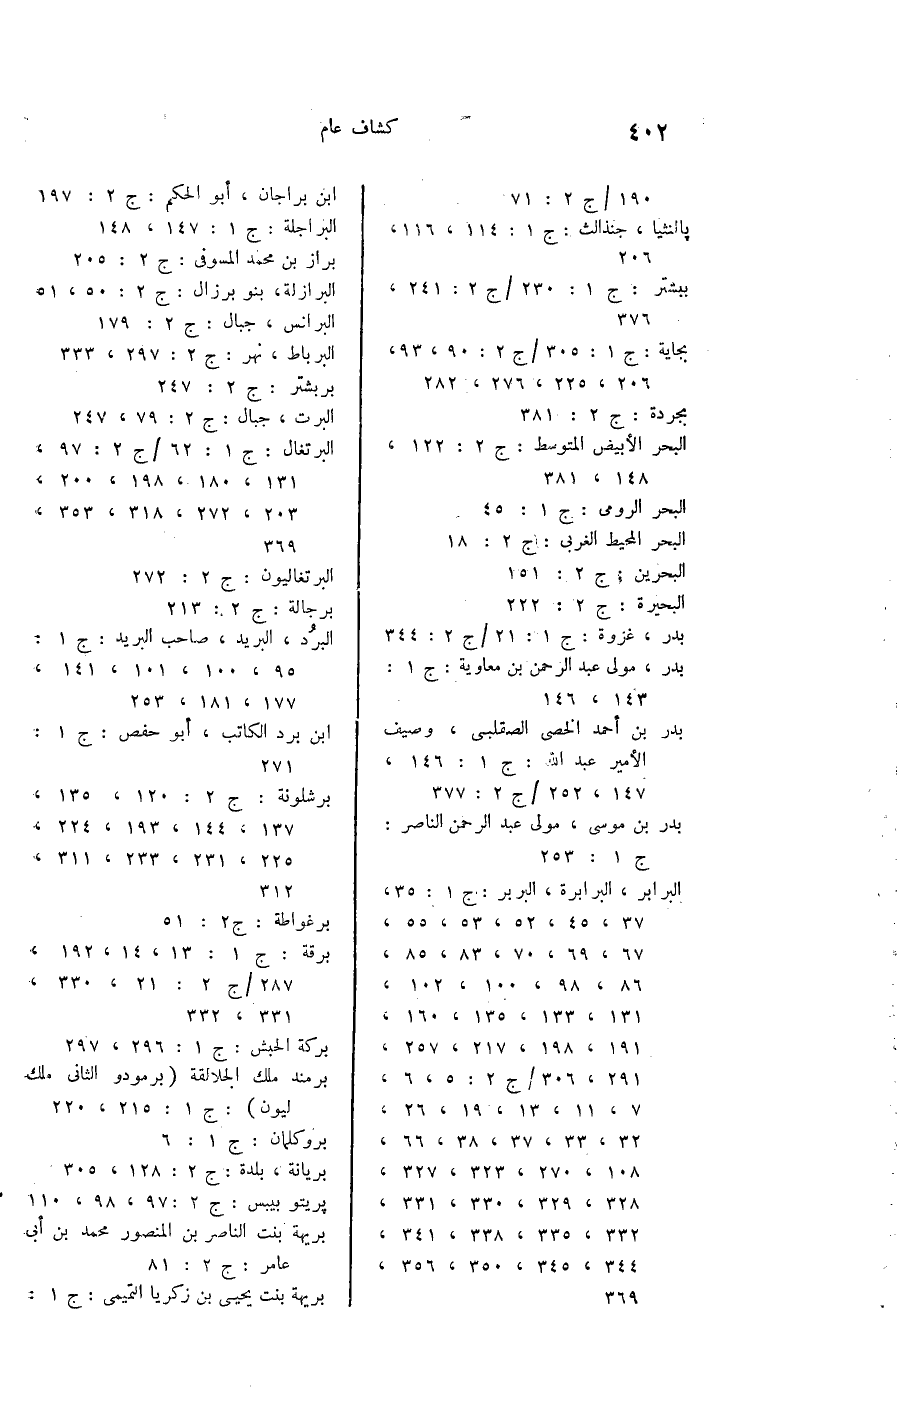 ٤٠٢
كشاف عام
١٩٠ /ج ٢ : ٧١
پالنثيا ، جنذالث : ج ١ : ١١٤ ، ١١٦،
٢٠٦
ببشتر : ج ١ : ٢٣٠ /ج ٢ : ٢٤١ ،
٣٧٦
بجاية : ج ١ : ٣٠٥ /ج ٢ : ٩٠ ، ٩٣،
٢٠٦ ، ٢٢٥ ، ٢٧٦ ، ٢٨٢
بجردة : ج ٢ : ٣٨١
البحر الأبيض المتوسط : ج ٢ : ١٢٢ ،
١٤٨ ، ٣٨١
البحر الرومى : ج ١ : ٤٥
البحر المحيط الغربى : ج ٢ : ١٨
البحرين : ج ٢ : ١٥١
البحيرة : ج ٢ : ٢٢٢
بدر ، غزوة : ج ١ : ٢١ /ج ٢ : ٣٤٤
بدر ، مولى عبد الرحمن بن معاوية : ج ١ :
١٤٣ ، ١٤٦
بدر بن أحمد الخصى الصقلبى ، وصيف
الأمير عبد الله : ج ١ : ١٤٦ ،
١٤٧ ، ٢٥٢ /ج ٢ : ٣٧٧
بدر بن موسى ، مولى عبد الرحمن الناصر :
ج ١ : ٢٥٣
البرابر ، البرابرة ، البربر : ج ١ : ٣٥،
٣٧ ، ٤٥ ، ٥٢ ، ٥٣ ، ٥٥ ،
٦٧ ، ٦٩ ، ٧٠ ، ٨٣ ، ٨٥ ،
٨٦ ، ٩٨ ، ١٠٠ ، ١٠٢ ،
١٣١ ، ١٣٣ ، ١٣٥ ، ١٦٠ ،
١٩١ ، ١٩٨ ، ٢١٧ ، ٢٥٧ ،
٢٩١ ، ٣٠٦ /ج ٢ : ٥ ، ٦ ،
٧ ، ١١ ، ١٣ ، ١٩ ، ٢٦ ،
٣٢ ، ٣٣ ، ٣٧ ، ٣٨ ، ٦٦ ،
١٠٨ ، ٢٧٠ ، ٣٢٣ ، ٣٢٧ ،
٣٢٨ ، ٣٢٩ ، ٣٣٠ ، ٣٣١ ،
٣٣٢ ، ٣٣٥ ، ٣٣٨ ، ٣٤١ ،
٣٤٤ ، ٣٤٥ ، ٣٥٠ ، ٣٥٦ ،
٣٦٩
ابن براجان ، أبو الحكم : ج ٢ : ١٩٧
البراجلة : ج ١ : ١٤٧ ، ١٤٨
براز بن محمد المسوفى : ج ٢ : ٢٠٥
البرازلة، بنو برزال : ج ٢ : ٥٠ ، ٥١
البرانس ، جبال : ج ٢ : ١٧٩
البرباط ، نهر : ج ٢ : ٢٩٧ ، ٣٣٣
بربشتر : ج ٢ : ٢٤٧
البرت ، جبال : ج ٢ : ٧٩ ، ٢٤٧
البرتغال : ج ١ : ٦٢ /ج ٢ : ٩٧ ،
١٣١ ، ١٨٠ ، ١٩٨ ، ٢٠٠ ،
٢٠٣ ، ٢٧٢ ، ٣١٨ ، ٣٥٣ ،
٣٦٩
البرتغاليون : ج ٢ : ٢٧٢
برجالة : ج ٢ : ٢١٣
البرُد ، البريد ، صاحب البريد : ج ١ :
٩٥ ، ١٠٠ ، ١٠١ ، ١٤١ ،
١٧٧ ، ١٨١ ، ٢٥٣
ابن برد الكاتب ، أبو حفص : ج ١ :
٢٧١
برشلونة : ج ٢ : ١٢٠ ، ١٣٥ ،
١٣٧ ، ١٤٤ ، ١٩٣ ، ٢٢٤ ،
٢٢٥ ، ٢٣١ ، ٢٣٣ ، ٣١١ ،
٣١٢
برغواطة : ج٢ : ٥١
برقة : ج ١ : ١٣ ، ١٤ ، ١٩٢ ،
٢٨٧ /ج ٢ : ٢١ ، ٣٣٠ ،
٣٣١ ، ٣٣٢
بركة الحبش : ج ١ : ٢٩٦ ، ٢٩٧
برمند ملك الجلالقة (برمودو الثانى ملك
ليون) : ج ١ : ٢١٥ ، ٢٢٠
بروكلمان : ج ١ : ٦
بريانة ، بلدة : ج ٢ : ١٢٨ ، ٣٠٥
پريتو بيبس : ج ٢ :٩٧ ، ٩٨ ، ١١٠
بريهة بنت الناصر بن المنصور محمد بن أبى
عامر : ج ٢ : ٨١
بريهة بنت يحيى بن زكريا التميمى : ج ١ :